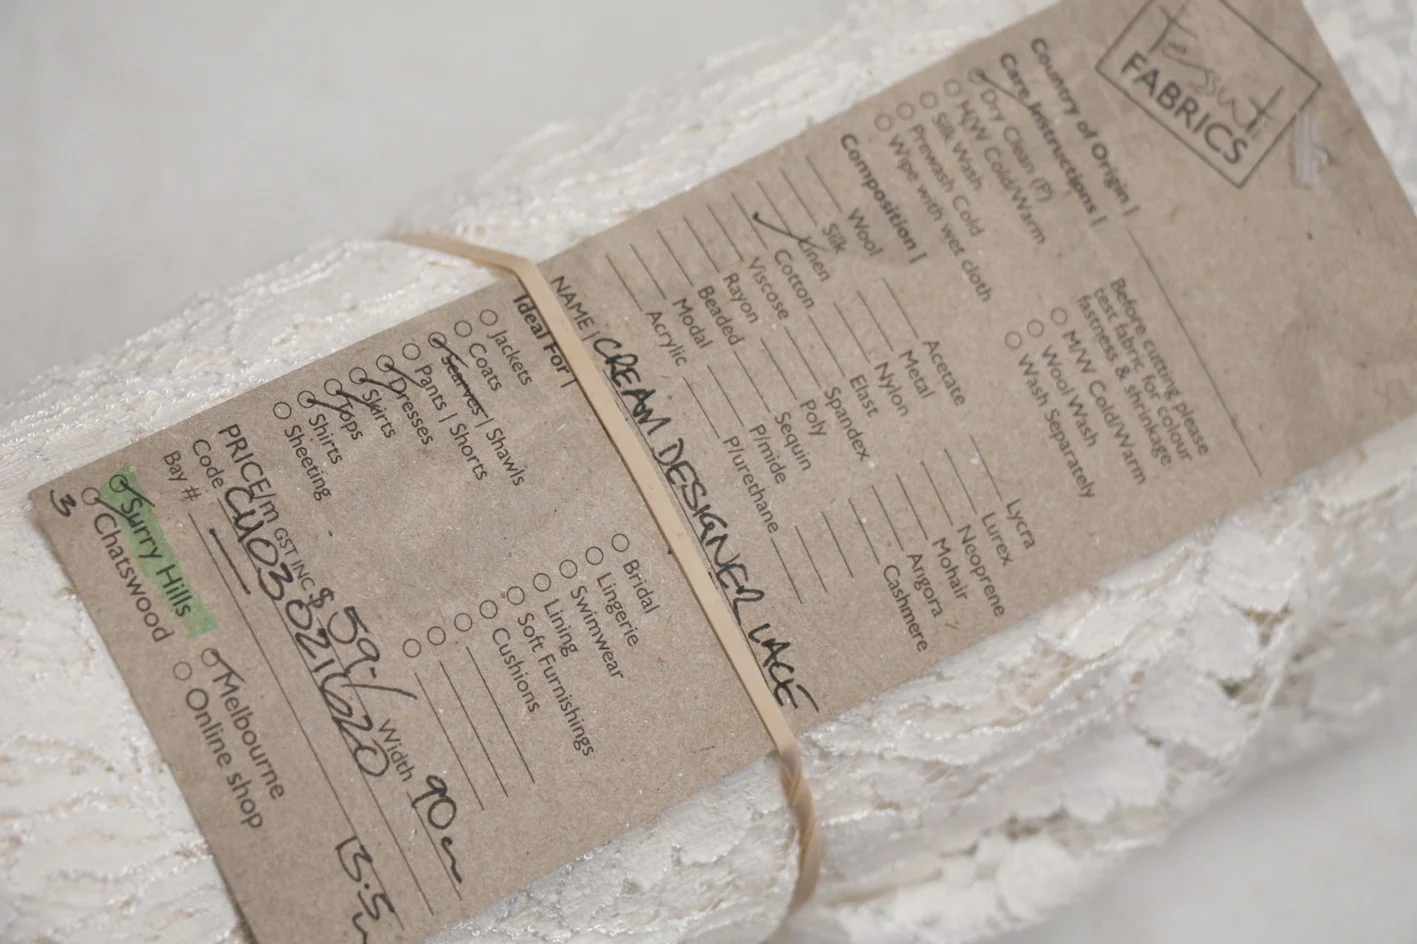 Tessuti
FABRICS
Country of Origin |
Care Instructions |
Dry Clean (P)
H/W Cold/Warm
Silk Wash
Prewash Cold
Wipe with wet cloth
Before cutting please
test fabric for colour
fastness & shrinkage.
M/W Cold/Warm
Wool Wash
Wash Separately
Composition |
Wool Acetate Lycra
Silk Metal Lurex
Linen Nylon Neoprene
Cotton Elast Mohair
Viscose Spandex Angora
Rayon Poly Cashmere
Beaded Sequin
Modal P/mide
Acrylic P/urethane
NAME | CREAM DESIGNER LACE
Ideal For |
Jackets Bridal
Coats Lingerie
Scarves | Shawls Swimwear
Pants | Shorts Lining
Dresses Soft Furnishings
Skirts Cushions
Tops
Shirts
Sheeting
PRICE/m GST INC $ 59-/ Width 90cm
Code
Bay # 13.5
Surry Hills Melbourne
3 Chatswood Online shop